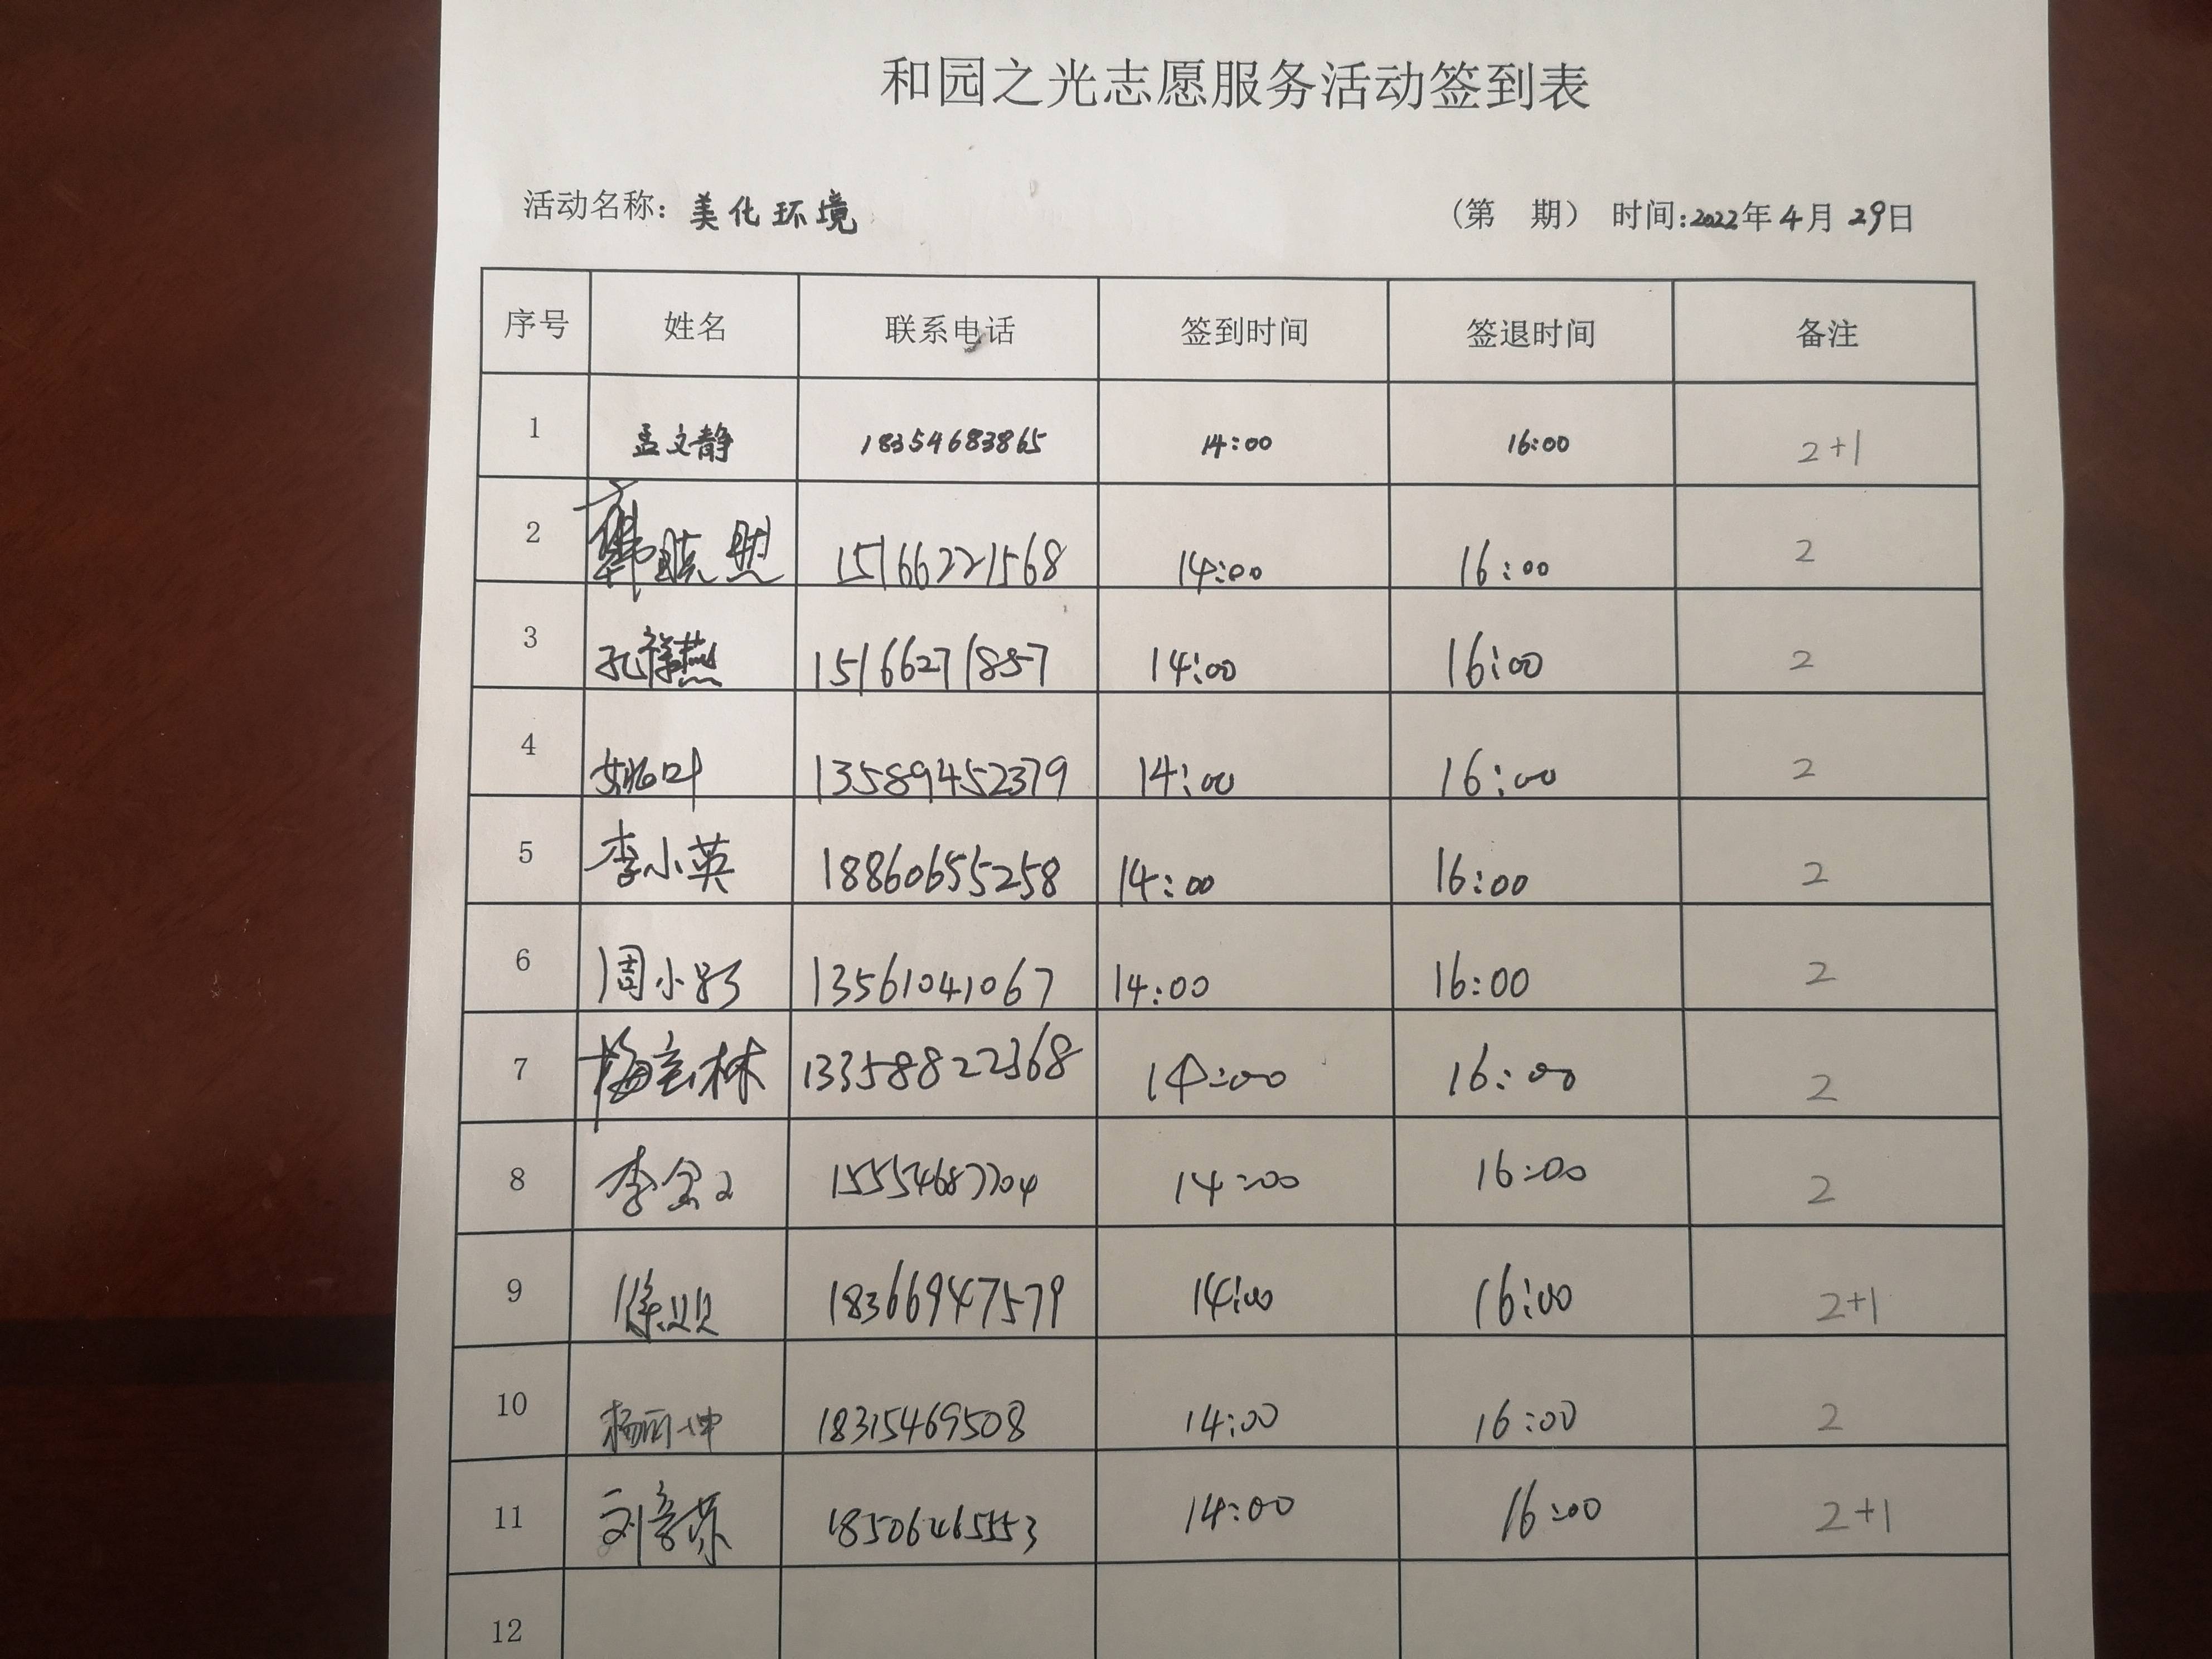 和园之光志愿服务活动签到表
活动名称：美化环境 （第 期） 时间：2022年4月29日
序号 姓名 联系电话 签到时间 签退时间 备注
1 孟文静 18354683865 14:00 16:00 2+1
2 15166221568 14:00 16:00 2
3 孔祥燕 15166271857 14:00 16:00 2
4 姚叶 13589452379 14:00 16:00 2
5 李小英 18860655258 14:00 16:00 2
6 周小彩 13561041067 14:00 16:00 2
7 梅玉林 13358822368 14:00 16:00 2
8 15554687704 14:00 16:00 2
9 18366947579 14:00 16:00 2+1
10 18315469508 14:00 16:00 2
11 18506465553 14:00 16:00 2+1
12